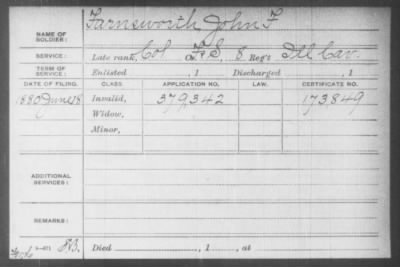 NAME OF SOLDIER: Farnsworth, John F
SERVICE: Late rank, Col Co. F&S, 8 Reg't Ill Cav.
TERM OF SERVICE: Enlisted , 1 Discharged , 1
DATE OF FILING. CLASS APPLICATION NO. LAW. CERTIFICATE NO.
1880 June 18 Invalid, 379,342 173,849
Widow,
Minor,
ADDITIONAL SERVICES:
REMARKS:
Died , 1 , at